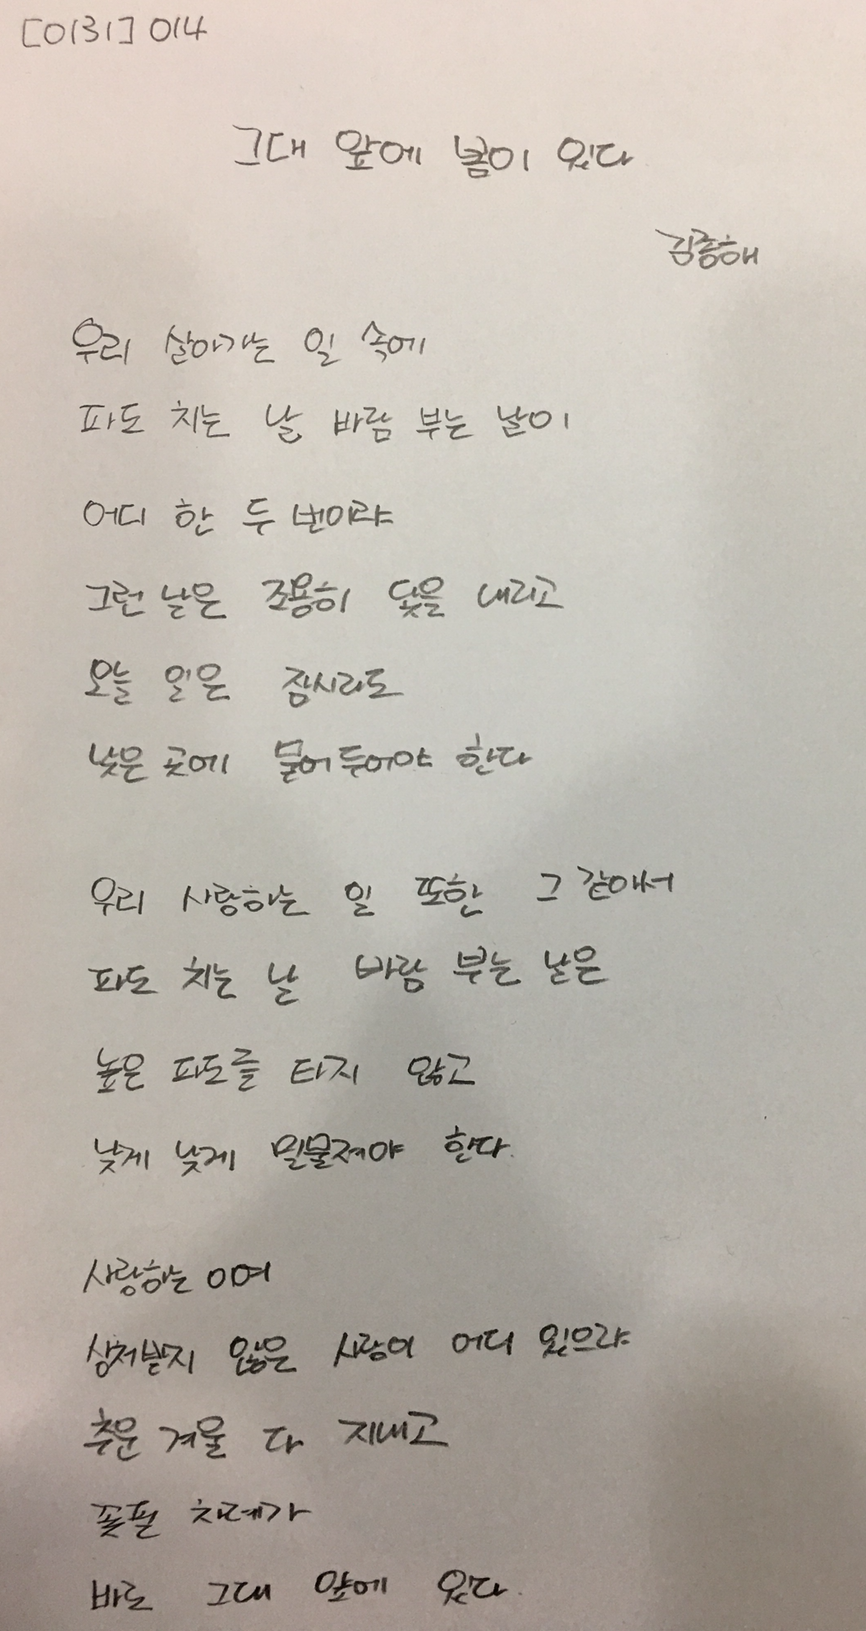 [0131] 014
그대 앞에 봄이 있다
김종해
우리 살아가는 일 속에
파도 치는 날 바람 부는 날이
어디 한 두 번이랴
그런 날은 조용히 닻을 내리고
오늘 일은 잠시라도
낮은 곳에 묻어두어야 한다
우리 사랑하는 일 또한 그 같아서
파도 치는 날 바람 부는 날은
높은 파도를 타지 않고
낮게 낮게 밀물져야 한다.
사랑하는 이여
상처받지 않은 사랑이 어디 있으랴
추운 겨울 다 지내고
꽃필 차례가
바로 그대 앞에 있다.